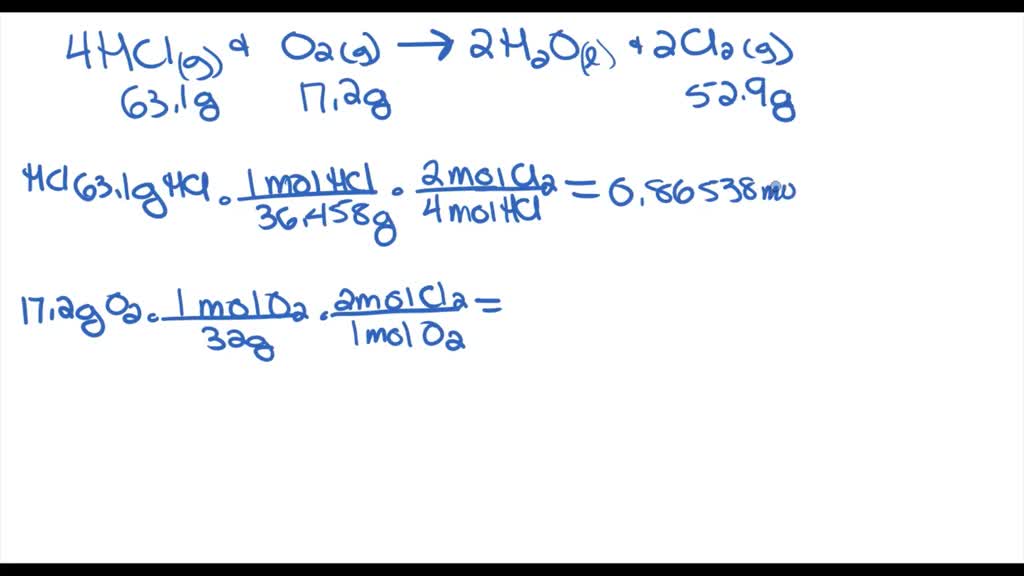 4HCl(g) + O2(g) → 2H2O(l) + 2Cl2(g)
63.1g 17.2g 52.9g
HCl 63.1g HCl · 1 mol HCl / 36.458g · 2 mol Cl2 / 4 mol HCl = 0.86538 mo
17.2g O2 · 1 mol O2 / 32g · 2 mol Cl2 / 1 mol O2 =